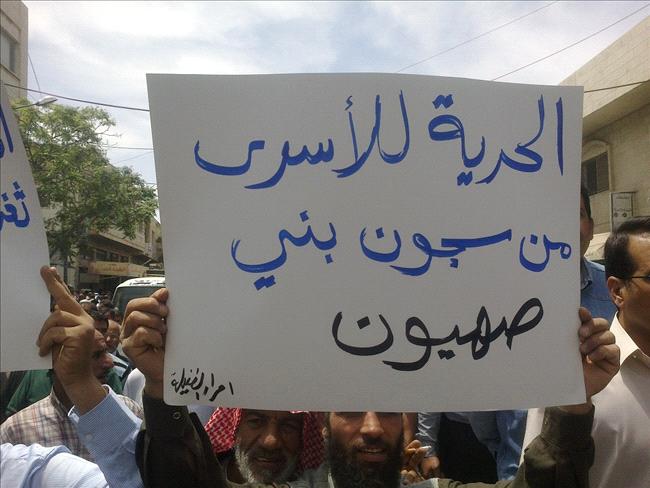 الحرية للأسرى
من سجون بني
صهيون
احرار الطفيلة